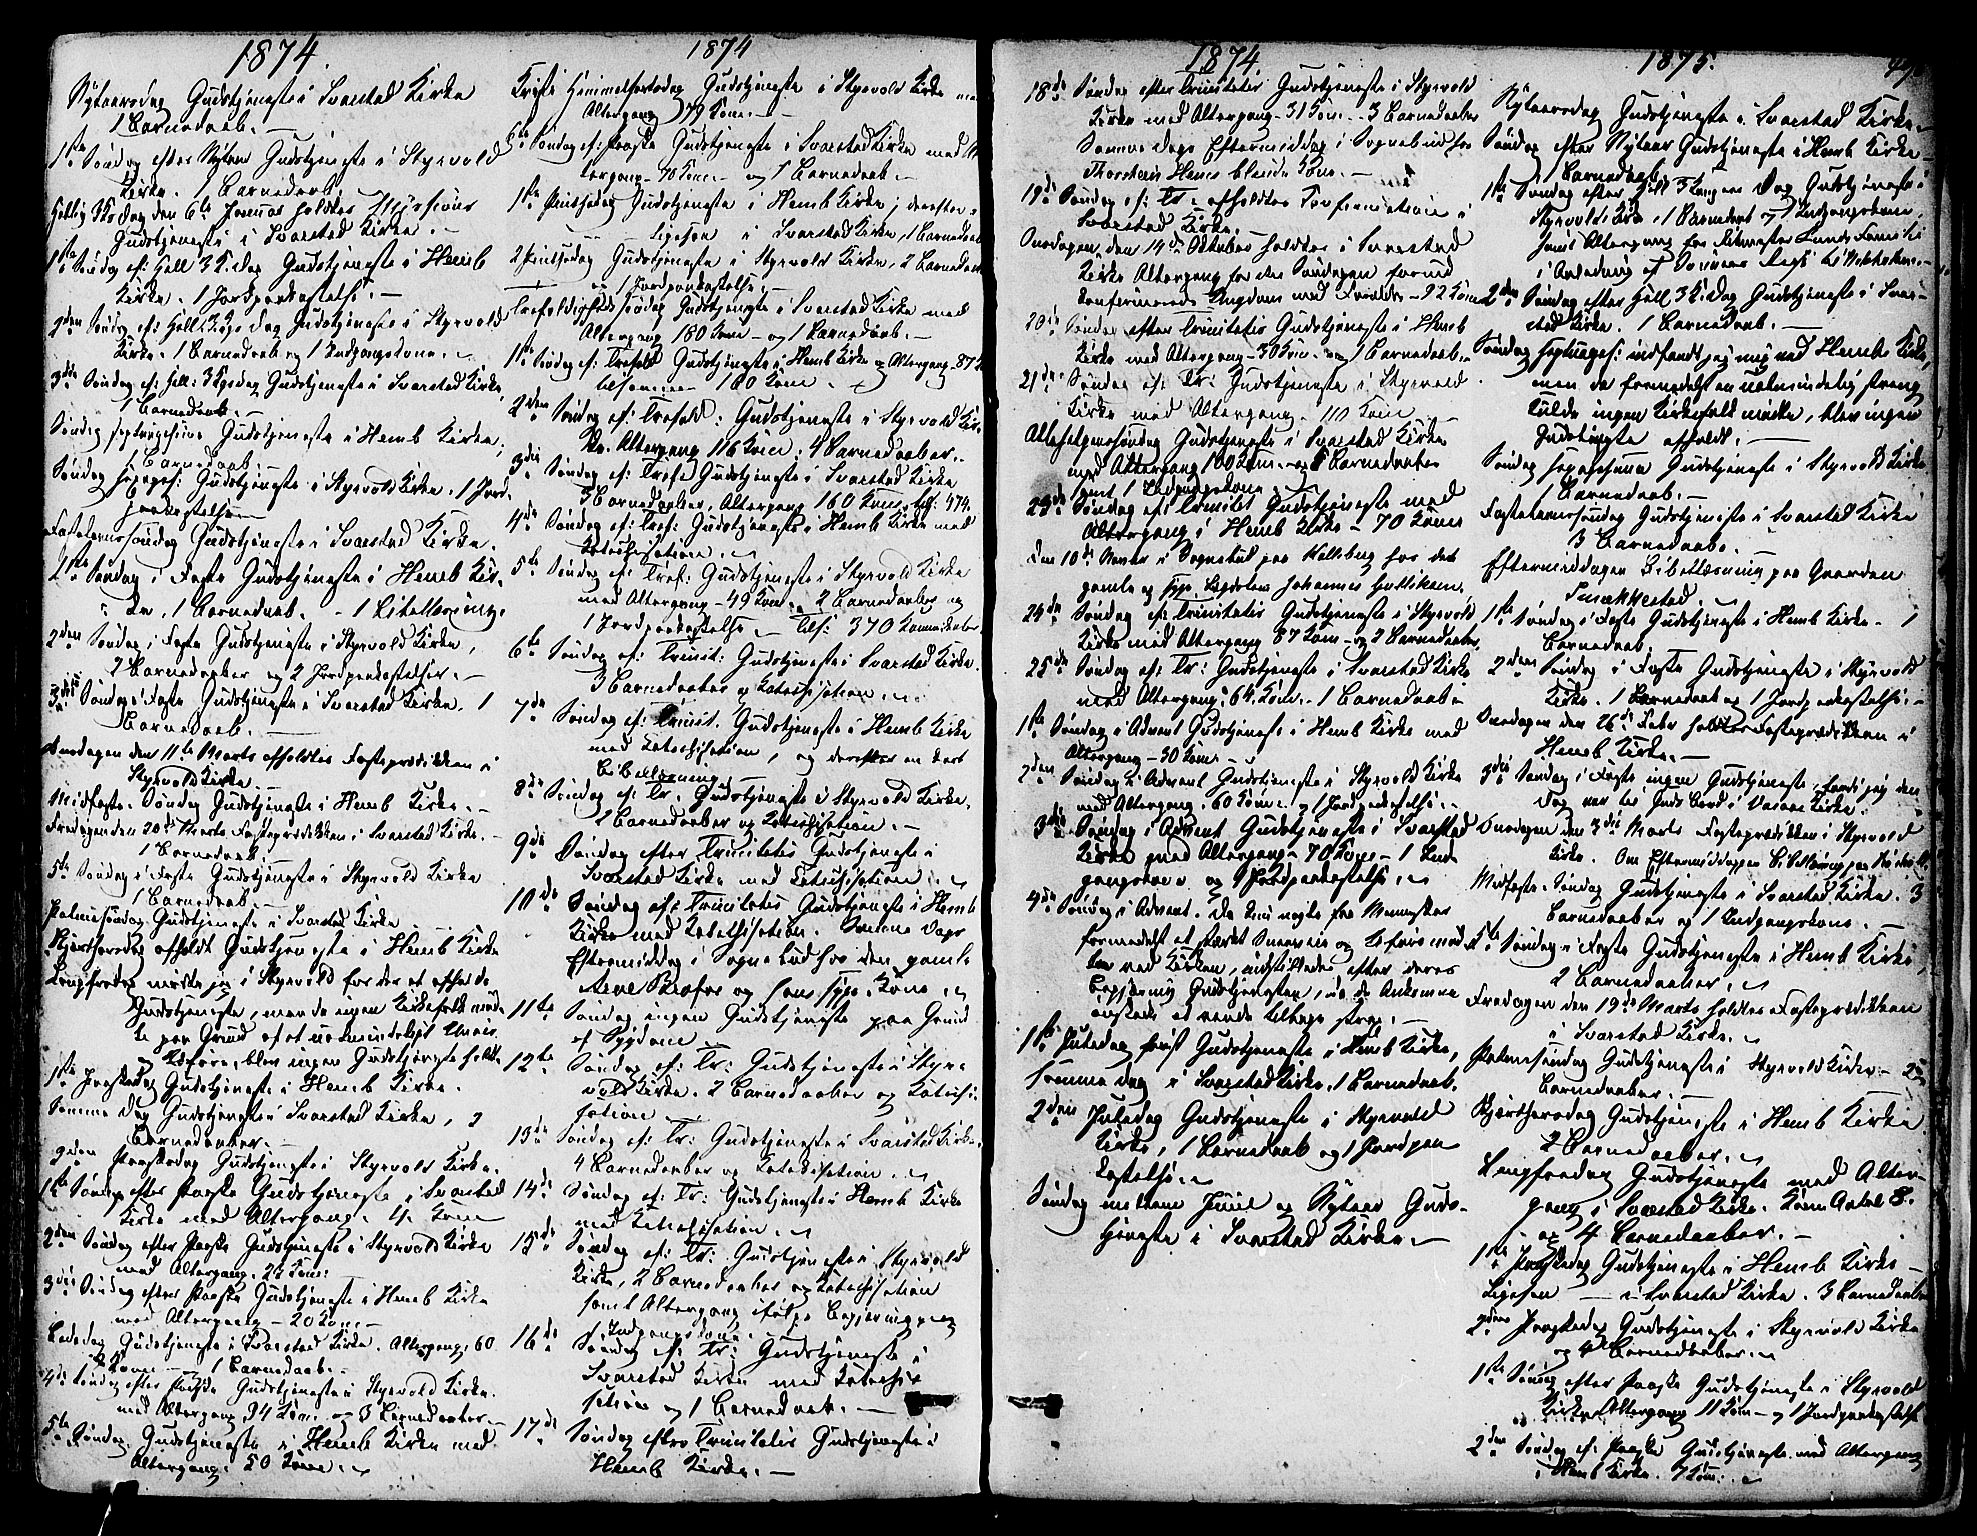 1874.
Nytaarsdag Gudstjeneste i Svarstad Kirke
1 Barnedaab.
1ste Søndag efter Nytaar Gudstjeneste i Styrvold
Kirke. 1 Barnedaab.
Hellig 3 Kg Dag den 6te Januar holdtes Missions
Gudstjeneste i Svarstad Kirke.
1ste Søndag ef: Hell 3 K. Dag Gudstjeneste i Hemb
Kirke. 1 Jordpaakastelse.
2den Søndag ef: Hell: 3 Kgs Dag Gudstjeneste i Styrvold
Kirke. 1 Barnedaab og 1 Indgangskone.
3die Søndag ef: Hell: 3 Kgsdag Gudstjeneste i Svarstad Kirke,
1 Barnedaab.
Søndag Septuagesima Gudstjeneste i Hemb Kirke,
1 Barnedaab
Søndag Sexages: Gudstjeneste i Styrvold Kirke. 1 Jord-
paakastelse
Fastelavnssøndag Gudstjeneste i Svarstad Kirke.
1ste Søndag i Faste Gudstjeneste i Hemb Kir-
ke, 1 Barnedaab. - 1 Bibellæsning.
2den Søndag i Faste Gudstjeneste i Styrvold Kirke,
2 Barnedaaber og 2 Jordpaakastelser.
3die Søndag i Faste Gudstjeneste i Svarstad Kirke. 1
Barnedaab.
Onsdagen den 11te Marts afholdtes Fasteprædikken i
Styrvold Kirke.
Midfaste-Søndag Gudstjeneste i Hemb Kirke.
Fredagen den 20de Marts Fasteprædikken i Svarstad Kirke.
1 Barnedaab.
5te Søndag i Faste Gudstjeneste i Styrvold Kirke
1 Barnedaab.
Palmesøndag Gudstjeneste i Svarstad Kirke
Skjærthorsdag afholdt Gudstjeneste i Hemb Kirke
Langfredag mødte jeg i Styrvold for der at afholde
Gudstjeneste, men da ingen Kirkefolk mød-
te paa Grund af et ualmindeligt Uveir
og Uføre, blev ingen Gudstjeneste holdt.
1ste Paaskedag Gudstjeneste i Hemb Kirke.
Samme Dag Gudstjeneste i Svarstad Kirke, 2
Barnedaaber.
2den Paaskedag Gudstjeneste i Styrvold Kirke.
1ste Søndag efter Paaske Gudstjeneste i Svarstad
Kirke med Altergang.
2den Søndag efter Paaske Gudstjeneste i Styrvold Kirke
med Altergang.
3die Søndag efter Paaske Gudstjeneste i Hemb Kirke
med Altergang - 20 Kom.
Bededag Gudstjeneste i Svarstad Kirke. Altergang: 60
1 Barnedaab.
4de Søndag efter Paaske Gudstjeneste i Styrvold Kirke.
med Altergang 34 Kom. og 3 Barnedaaber
5te Søndag Gudstjeneste i Hemb Kirke med
Altergang. 50 Kom.
1874
Kristi Himmelfartsdag Gudstjeneste i Styrvold Kirke
Altergang 79 Kom.
Søndag ef: Paaske Gudstjeneste i Svarstad Kirke med Al-
tergang - 70 Kom. og 1 Barnedaab.
1ste Pintsedag Gudstjeneste i Hemb Kirke; derefter
ligesaa i Svarstad Kirke, 1 Barnedaab
2 Pintsedag Gudstjeneste i Styrvold Kirke, 2 Barnedaab
og 1 Jordpaakastelse.
Trefoldigheds Søndag Gudstjeneste i Svarstad Kirke med
Altergang 180 Kom - og 1 Barnedaab.
1ste Søndag ef: Trefold Gudstjeneste i Hemb Kirke Altergang - 87
2den Søndag ef: Trefold: Gudstjeneste i Styrvold Kir-
ke. Altergang 116 Kom: 4 Barnedaaber.
3die Søndag ef: Tref: Gudstjeneste i Svarstad Kirke
3 Barnedaaber, Altergang 160 Kom.
4de Søndag ef: Tref: Gudstjeneste i Hemb Kirke med
Katechisation.
5te Søndag ef: Tref: Gudstjeneste i Styrvold Kirke
med Altergang - 49 Kom. 2 Barnedaaber og
1 Jordpaakastelse
6te Søndag ef: Trinit: Gudstjeneste i Svarstad Kirke.
3 Barnedaaber og Katechisation.
7de Søndag ef: Trinit. Gudstjeneste i Hemb Kirke
med Katechisation, og derefter en kort
Bibellæsning.
8de Søndag ef: Tr. Gudstjeneste i Styrvold Kirke,
1 Barnedaaber og Katechisation.
9de Søndag efter Trinitatis Gudstjeneste i
Svarstad Kirke med Katechisation.
10de Søndag ef: Trinitatis Gudstjeneste i Hemb
Kirke med Katechisation. Samme Dags
Eftermiddag i Sognebud hos den gamle
og hans syge Kone.
11te Søndag ingen Gudstjeneste paa Grund
af Sygdom.
12te Søndag ef: Tr: Gudstjeneste i Styr-
vold Kirke. 2 Barnedaaber og Katechi-
sation.
13de Søndag ef: Tr: Gudstjeneste i Svarstad Kirke.
4 Barnedaaber og Katechisation.
14de Søndag ef: Tr: Gudstjeneste i Hemb Kirke
med Katechisation.
15de Søndag ef: Tr: Gudstjeneste i Styrvold
Kirke, 2 Barnedaaber og Katechisation
samt Altergang ifølge Begjæring
af Indgangskone.
16de Søndag ef: Tr: Gudstjeneste i
Svarstad Kirke med Katechi-
sation og 1 Barnedaab.
17de Søndag efter Trinitatis Gudstjeneste i
Hemb Kirke.
1874
18de Søndag efter Trinitatis Gudstjeneste i Styrvold
Kirke med Altergang - 31 Kom. - 3 Barnedaaber
Samme Dags Eftermiddag i Sognebud hos
Thorstein Hems blinde Kone.
19de Søndag ef: Tr: afholdtes Confirmation i
Svarstad Kirke.
Onsdagen den 14de Oktober holdtes i Svarstad
Kirke Altergang for den Søndagen forud
konfirmerede Ungdom med Forældre - 92 Kom
20de Søndag efter Trinitatis Gudstjeneste i Hemb
Kirke med Altergang - 30 Kom. og 1 Barnedaab.
21de Søndag ef: Tr: Gudstjeneste i Styrvold
Kirke med Altergang. 110 Kom
Allehelgenssøndag Gudstjeneste i Svarstad Kirke
med Altergang 100 Kom. og Barnedaaber
samt 1 Indgangskone.
23de Søndag ef: Trinitat Gudstjeneste med
Altergang i Hemb Kirke - 70 Kom
Den 10de Novbr i Sognebud paa hos det
gamle og syge Johannes
24de Søndag ef: Trinitatis Gudstjeneste i Styrvold
Kirke med Altergang 87 Kom - og 2 Barnedaaber
25de Søndag ef: Tr: Gudstjeneste i Svarstad Kirke
med Altergang: 64 Kom. - 1 Barnedaab
1ste Søndag i Advent Gudstjeneste i Hemb Kirke med
Altergang - 30 Kom.
2den Søndag i Advent Gudstjeneste i Styrvold Kirke
med Altergang. 60 Kom. og 1 Jordpaakastelse.
3die Søndag i Advent Gudstjeneste i Svarstad
Kirke med Altergang - 70 Kom - 1 Ind-
gangskone og 1 Jordpaakastelse.
4de Søndag i Advent. Da kun nogle faa Mennesker
formedelst et stærkt Sneeveir og Uføre mød-
te ved Kirken, indstilledes efter deres
Begjæring Gudstjenesten, da de Ankomne
ønskede at vende tilbage strax.
1ste Juledag først Gudstjeneste i Hemb Kirke,
samme Dag i Svarstad Kirke. 1 Barnedaab.
2den Juledag Gudstjeneste i Styrvold
Kirke, 1 Barnedaab og 1 Jordpaa-
kastelse.
Søndag mellem Juul og Nytaar Guds-
tjeneste i Svarstad Kirke.
1875.
Nytaarsdag Gudstjeneste i Svarstad Kirke
Søndag efter Nytaar Gudstjeneste i Hemb Kirke
1 Barnedaab.
1ste Søndag efter Hell 3 Kongers Dag Gudstjeneste i
Styrvold Kirke, 1 Barnedaab og 1 Indgangskone,
samt Altergang for Familie
i Anledning af
2den Søndag efter Hell 3 K. Dag Gudstjeneste i Svar-
stad Kirke. 1 Barnedaab.
Søndag Septuages: indfandt jeg mig ved Hemb Kirke,
men da formedelst en ualmindelig streng
Kulde ingen Kirkefolk mødte, blev ingen
Gudstjeneste afholdt.
Søndag Sexagesima Gudstjeneste i Styrvold Kirke
1 Barnedaab.
Fastelavnssøndag Gudstjeneste i Svarstad Kirke
3 Barnedaab.
Eftermiddagen Bibellæsning paa Gaarden
1ste Søndag i Faste Gudstjeneste i Hemb Kirke - 1
Barnedaab.
2den Søndag i Faste Gudstjeneste i Styrvold
Kirke. 1 Barnedaab og 1 Jordpaakastelse.
Onsdagen den 26de Febr holdtes Fasteprædikken i
Hemb Kirke.
3die Søndag i Faste ingen Gudstjeneste, fordi jeg den
Dag var til Guds Bord i Kirke.
Onsdagen den 3die Marts Fasteprædikken i Styrvold
Kirke. Om Eftermiddagen Bibellæsning paa
Midfaste-Søndag Gudstjeneste i Svarstad Kirke. 3
Barnedaaber og 1 Indgangskone.
5te Søndag i Faste Gudstjeneste i Hemb Kirke,
2 Barnedaaber.
Fredagen den 19de Marts holdtes Fasteprædikken
i Svarstad Kirke.
Palmesøndag Gudstjeneste i Styrvold Kirke - 2
Barnedaaber.
Skjærthorsdag Gudstjeneste i Hemb Kirke
2 Barnedaaber.
Langfredag Gudstjeneste med Alter-
gang i Svarstad Kirke. Kom Antal 8.
og 4 Barnedaaber.
1ste Paaskedag Gudstjeneste i Hemb Kirke
Ligesaa i Svarstad Kirke. 3 Barnedaaber
2den Paaskedag Gudstjeneste i Styrvold Kirke
og 4 Barnedaaber.
1ste Søndag efter Paaske Gudstjeneste i Styrvold
Kirke Altergang 11 Kom - og 1 Jordpaakastelse
2den Søndag ef: Paaske Gudstjeneste med Altergang
i Hemb Kirke. 7 Kom.